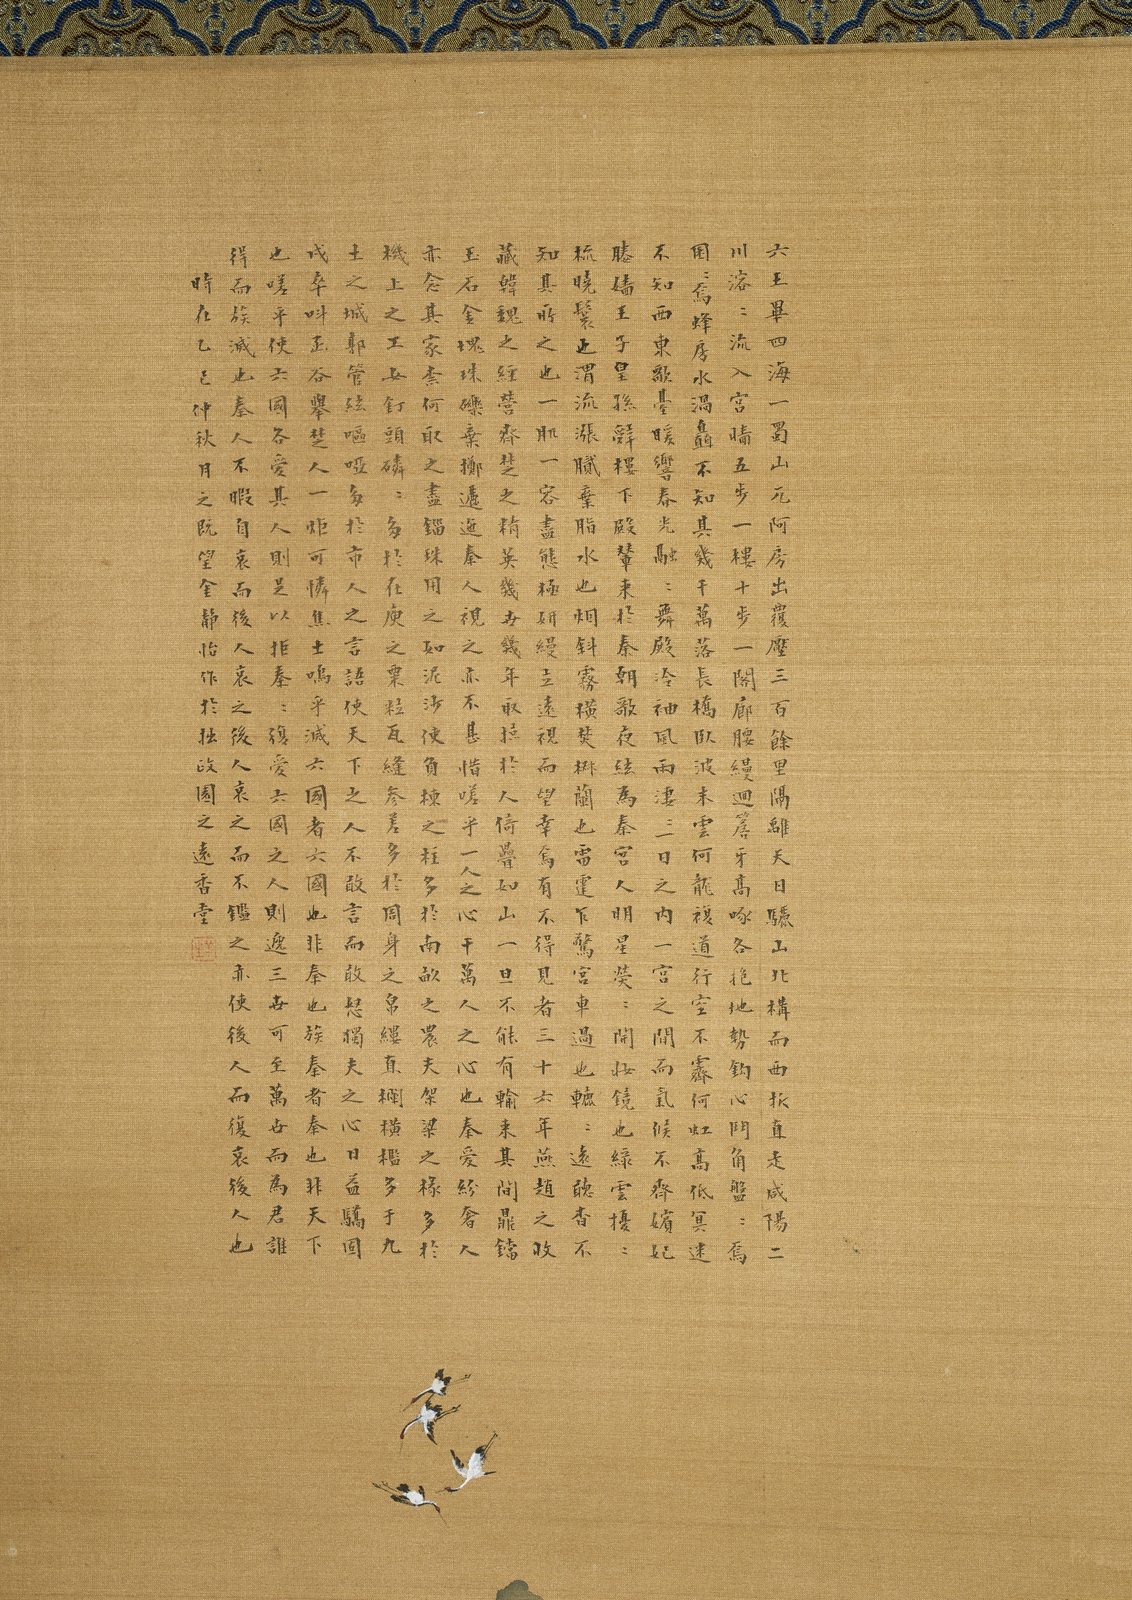 六王畢四海一蜀山兀阿房出覆壓三百餘里隔離天日驪山北構而西折直走咸陽二
川溶〻流入宮牆五步一樓十步一閣廊腰縵迴簷牙高啄各抱地勢鈎心鬥角盤〻焉
囷〻焉蜂房水渦矗不知其幾千萬落長橋臥波未雲何龍複道行空不霽何虹高低冥迷
不知西東歌臺暖響春光融〻舞殿冷袖風雨淒〻一日之內一宮之間而氣候不齊嬪妃
媵嬙王子皇孫辭樓下殿輦來於秦朝歌夜絃為秦宮人明星熒〻開妝鏡也綠雲擾〻
梳曉鬟也渭流漲膩棄脂水也烟斜霧橫焚椒蘭也雷霆乍驚宮車過也轆〻遠聽杳不
知其所之也一肌一容盡態極妍縵立遠視而望幸焉有不得見者三十六年燕趙之收
藏韓魏之經營齊楚之精英幾世幾年取掠於人倚疊如山一旦不能有輸來其間鼎鐺
玉石金塊珠礫棄擲邐迤秦人視之亦不甚惜嗟乎一人之心千萬人之心也秦愛紛奢人
亦念其家柰何取之盡錙銖用之如泥沙使負棟之柱多於南畝之農夫架梁之椽多於
機上之工女釘頭磷〻多於在庾之粟粒瓦縫參差多於周身之帛縷直欄橫檻多于九
土之城郭管絃嘔啞多於市人之言語使天下之人不敢言而敢怒獨夫之心日益驕固
戍卒叫函谷舉楚人一炬可憐焦土嗚乎滅六國者六國也非秦也族秦者秦也非天下
也嗟乎使六國各愛其人則足以拒秦〻復愛六國之人則遞三世可至萬世而為君誰
得而族滅也秦人不暇自哀而後人哀之後人哀之而不鑑之亦使後人而復哀後人也
時在乙巳仲秋月之既望金靜怡作於拙政園之遠香堂